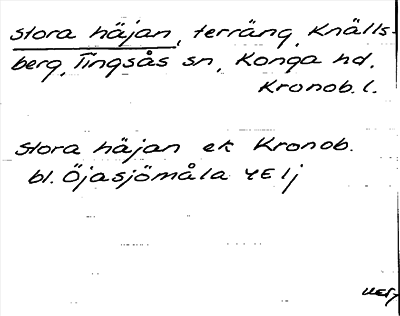 Stora häjan, terräng, Knälls-
berg, Tingsås sn, Konga hd,
Kronob. l.
Stora häjan ek Kronob.
bl. Öjasjömåla 4E 1j